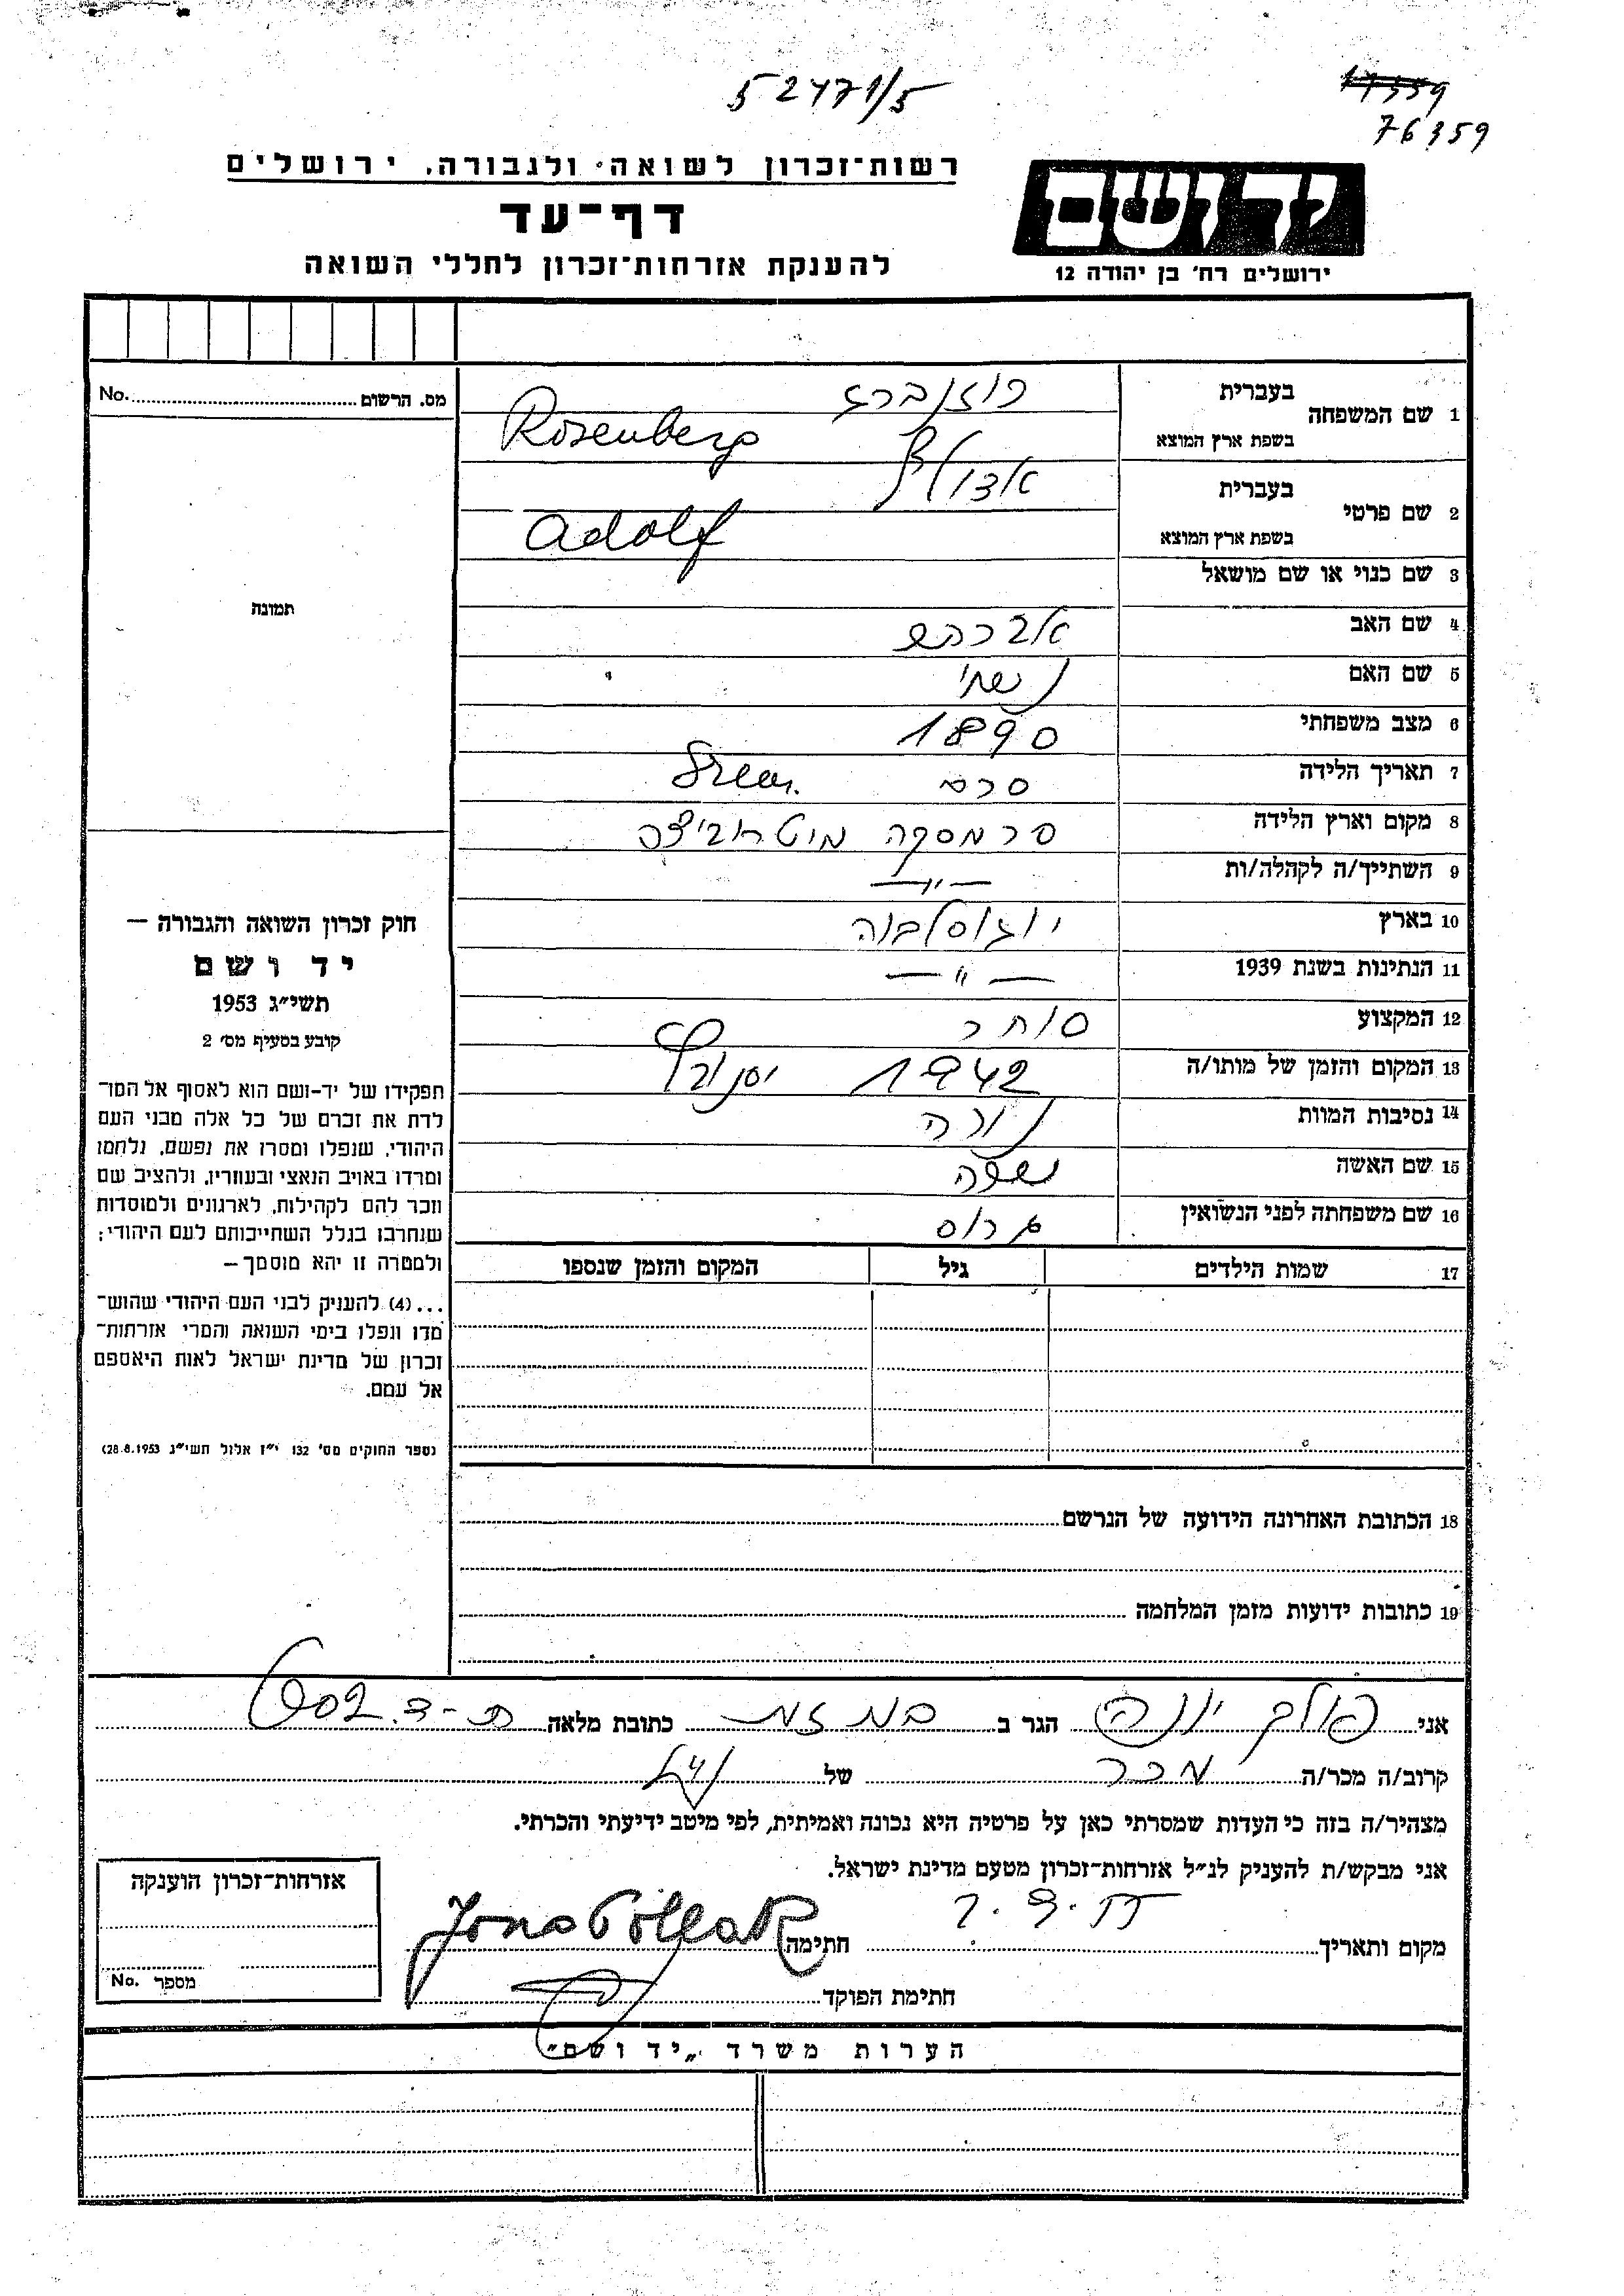 52471/5
76359
רשות־זכרון לשואה ולגבורה, ירושלים
דף־עד
להענקת אזרחות־זכרון לחללי השואה
יד ושם
ירושלים רח' בן יהודה 12
מס. הרשום No.
1 שם המשפחה
בעברית רוזנברג
בשפת ארץ המוצא Rosenberg
2 שם פרטי
בעברית אדולף
בשפת ארץ המוצא Adolf
3 שם כנוי או שם מושאל
4 שם האב אברהם
5 שם האם
6 מצב משפחתי נשוי
7 תאריך הלידה 1890
8 מקום וארץ הלידה סרם Srem.
9 השתייך/ה לקהלה/ות סרמסקה מיטרוביצה
— " —
10 בארץ יוגוסלביה
11 הנתינות בשנת 1939 — " —
12 המקצוע סוחר
13 המקום והזמן של מותו/ה 1942 יסנובץ
14 נסיבות המוות נורה
15 שם האשה
16 שם משפחתה לפני הנשואין גרוס
17 שמות הילדים גיל המקום והזמן שנספו
18 הכתובת האחרונה הידועה של הנרשם
19 כתובות ידועות מזמן המלחמה
תמונה
חוק זכרון השואה והגבורה —
יד ושם
תשי״ג 1953
קובע בסעיף מס׳ 2
תפקידו של יד-ושם הוא לאסוף אל המו־
לדת את זכרם של כל אלה מבני העם
היהודי, שנפלו ומסרו את נפשם, נלחמו
ומרדו באויב הנאצי ובעוזריו, ולהציב שם
וזכר להם לקהילות, לארגונים ולמוסדות
שנחרבו בגלל השתייכותם לעם היהודי;
ולמטרה זו יהא מוסמך —
...(4) להעניק לבני העם היהודי שהוש־
מדו ונפלו בימי השואה והמרי אזרחות־
זכרון של מדינת ישראל לאות היאספם
אל עמם.
(ספר החוקים מס׳ 132 י״ז אלול תשי״ג 28.8.1953)
אני פולק יונה הגר ב כתובת מלאה ת.ד. 902
קרוב/ה מכר/ה מכר של הנ״ל
מצהיר/ה בזה כי העדות שמסרתי כאן על פרטיה היא נכונה ואמיתית, לפי מיטב ידיעתי והכרתי.
אני מבקש/ת להעניק לנ״ל אזרחות־זכרון מטעם מדינת ישראל.
מקום ותאריך חתימה Jona Pollak
חתימת הפוקד
אזרחות־זכרון הוענקה
מספר No.
הערות משרד „יד ושם״